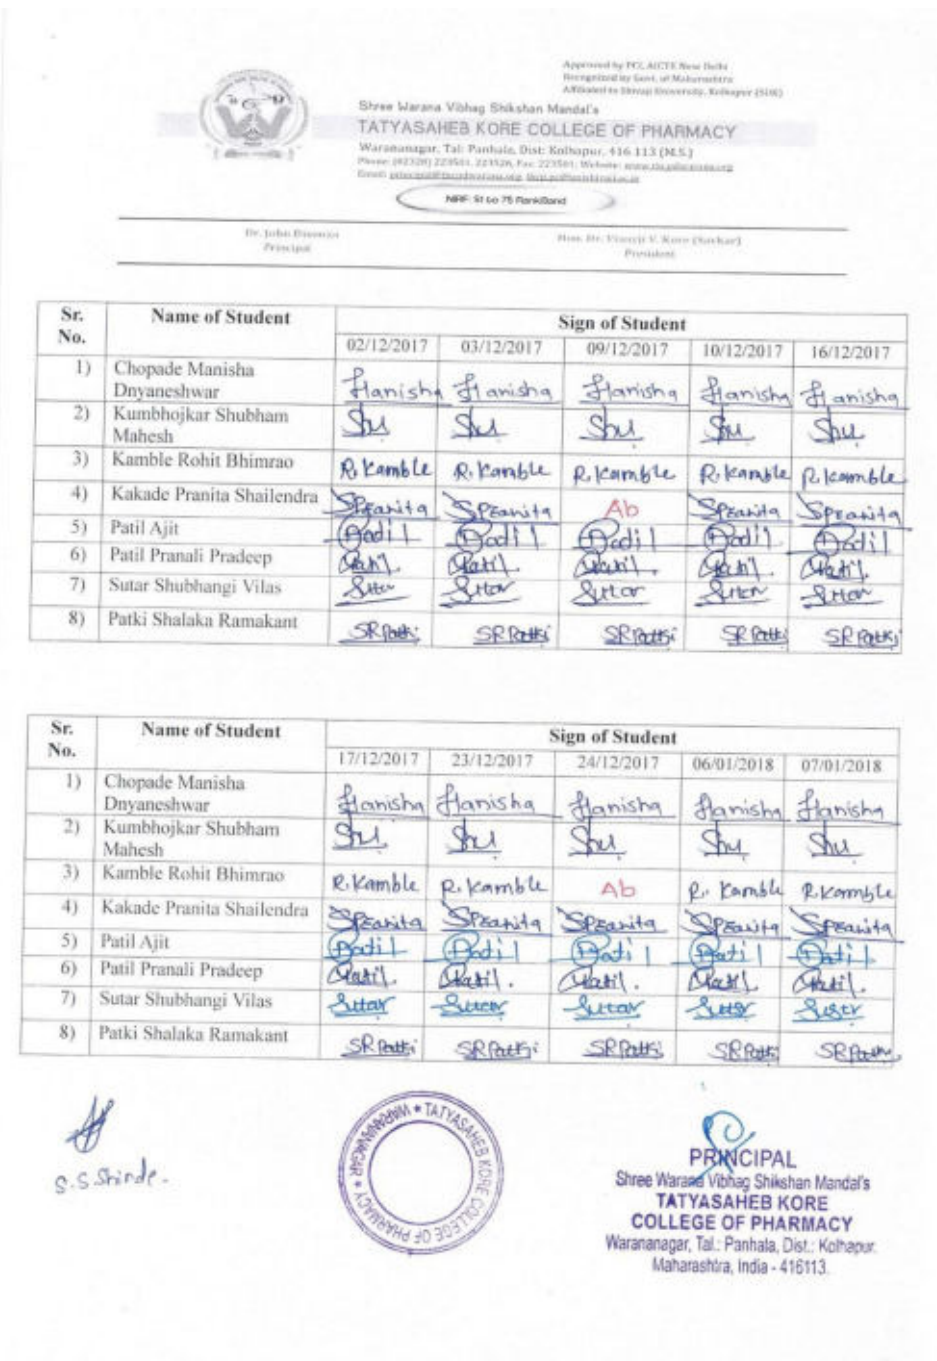 Approved by PCI, AICTE New Delhi
Recognized by Govt. of Maharashtra
Affiliated to Shivaji University, Kolhapur (SUK)
Shree Warana Vibhag Shikshan Mandal's
TATYASAHEB KORE COLLEGE OF PHARMACY
Warananagar, Tal: Panhala, Dist: Kolhapur, 416 113 (M.S.)
Phone: (02328) 223501, 223526, Fax: 223501; Website: www.tkcpwarana.org
Email:
NIRF: 51 to 75 RankBand
Dr. John Hon. Dr. Vinayji V. Kore (Savkar)
Principal President
Sr. No. Name of Student Sign of Student
02/12/2017 03/12/2017 09/12/2017 10/12/2017 16/12/2017
1) Chopade Manisha
Dnyaneshwar Hanisha Hanisha Hanisha Hanisha Hanisha
2) Kumbhojkar Shubham
Mahesh Shu Shu Shu Shu Shu
3) Kamble Rohit Bhimrao R. Kamble R. Kamble R. Kamble R. Kamble R. Kamble
4) Kakade Pranita Shailendra SPranita SPranita Ab SPranita SPranita
5) Patil Ajit Patil Patil Patil Patil Patil
6) Patil Pranali Pradeep Patil. Patil. Patil. Patil. Patil.
7) Sutar Shubhangi Vilas Sutar Sutar Sutar Sutar Sutar
8) Patki Shalaka Ramakant SRPatki SRPatki SRPatki SRPatki SRPatki
Sr. No. Name of Student Sign of Student
17/12/2017 23/12/2017 24/12/2017 06/01/2018 07/01/2018
1) Chopade Manisha
Dnyaneshwar Hanisha Hanisha Hanisha Hanisha Hanisha
2) Kumbhojkar Shubham
Mahesh Shu Shu Shu Shu Shu
3) Kamble Rohit Bhimrao R. Kamble R. Kamble Ab R. Kamble R. Kamble
4) Kakade Pranita Shailendra SPranita SPranita SPranita SPranita SPranita
5) Patil Ajit Patil Patil Patil Patil Patil
6) Patil Pranali Pradeep Patil. Patil. Patil. Patil. Patil.
7) Sutar Shubhangi Vilas Sutar Sutar Sutar Sutar Sutar
8) Patki Shalaka Ramakant SRPatki SRPatki SRPatki SRPatki SRPatki
S.S Shinde.
TATYASAHEB KORE COLLEGE OF PHARMACY ★ WARANANAGAR ★
PRINCIPAL
Shree Warana Vibhag Shikshan Mandal's
TATYASAHEB KORE
COLLEGE OF PHARMACY
Warananagar, Tal.: Panhala, Dist.: Kolhapur.
Maharashtra, India - 416113.